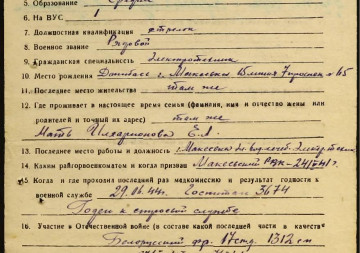 5. Образование Средн.
6. На ВУС 1
7. Должностная квалификация стрелок
8. Военное звание Рядовой
9. Гражданская специальность Электротехник
10. Место рождения Донбасс г. Макеевка
11. Последнее место жительства там же
12. Где проживает в настоящее время семья (фамилия, имя и отчество жены или
родителей и точный их адрес) там же
Мать Илларионова Е.А.
13. Последнее место работы и должность г. Макеевка
14. Каким райгорвоенкоматом и когда призван Макеевский РВК
15. Когда и где проходил последний раз медкомиссию и результат годности к
военной службе 29.06.44г. Госпиталь 3674
Годен к строевой службе
16. Участие в Отечественной войне (в составе какой последней части и в качестве
Белорусский фр. 17стд. 1312 сп